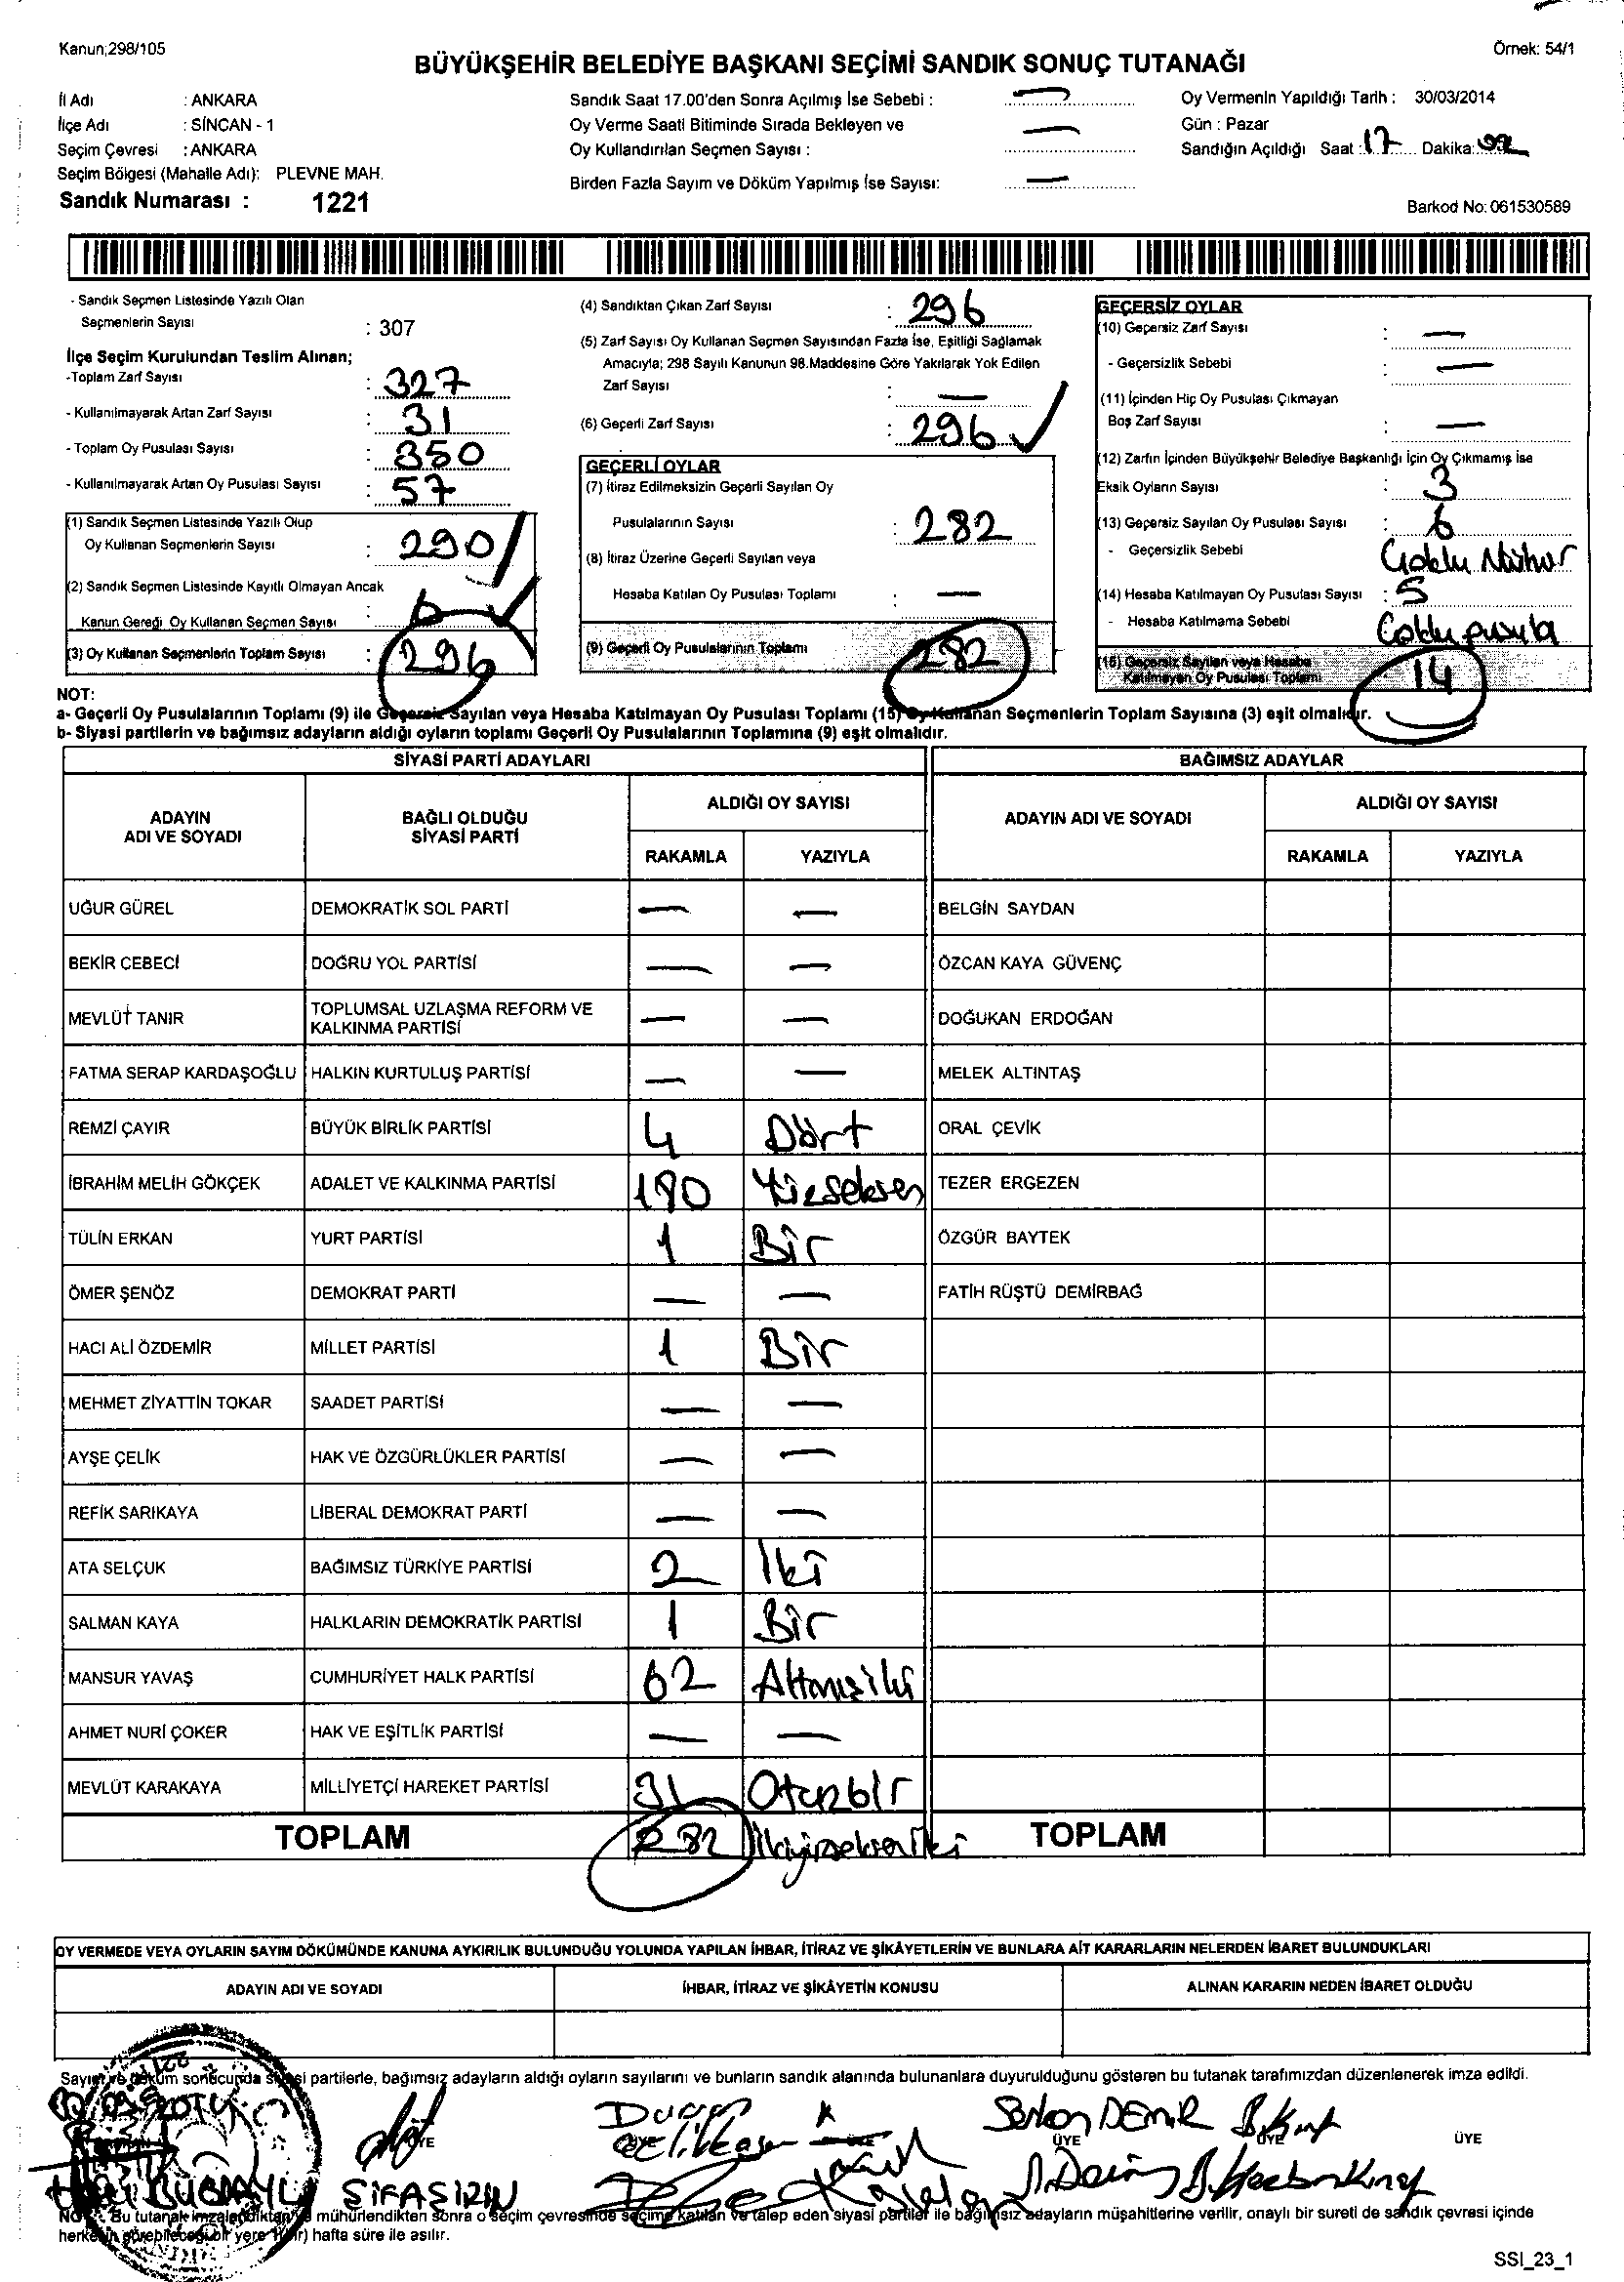 Kanun;298/105
Örnek: 54/1
BÜYÜKŞEHİR BELEDİYE BAŞKANI SEÇİMİ SANDIK SONUÇ TUTANAĞI
İl Adı : ANKARA
İlçe Adı : SİNCAN - 1
Seçim Çevresi : ANKARA
Seçim Bölgesi (Mahalle Adı): PLEVNE MAH.
Sandık Numarası : 1221
Sandık Saat 17.00'den Sonra Açılmış İse Sebebi : —
Oy Verme Saati Bitiminde Sırada Bekleyen ve
Oy Kullandırılan Seçmen Sayısı : —
Birden Fazla Sayım ve Döküm Yapılmış İse Sayısı: —
Oy Vermenin Yapıldığı Tarih : 30/03/2014
Gün : Pazar
Sandığın Açıldığı Saat : 17 Dakika:
Barkod No: 061530589
- Sandık Seçmen Listesinde Yazılı Olan
Seçmenlerin Sayısı : 307
İlçe Seçim Kurulundan Teslim Alınan;
-Toplam Zarf Sayısı : 327
- Kullanılmayarak Artan Zarf Sayısı : 31
- Toplam Oy Pusulası Sayısı : 350
- Kullanılmayarak Artan Oy Pusulası Sayısı : 57
(1) Sandık Seçmen Listesinde Yazılı Olup
Oy Kullanan Seçmenlerin Sayısı : 290
(2) Sandık Seçmen Listesinde Kayıtlı Olmayan Ancak
Kanun Gereği Oy Kullanan Seçmen Sayısı : 6
(3) Oy Kullanan Seçmenlerin Toplam Sayısı : 296
(4) Sandıktan Çıkan Zarf Sayısı : 296
(5) Zarf Sayısı Oy Kullanan Seçmen Sayısından Fazla İse, Eşitliği Sağlamak
Amacıyla; 298 Sayılı Kanunun 98.Maddesine Göre Yakılarak Yok Edilen
Zarf Sayısı : —
(6) Geçerli Zarf Sayısı : 296
GEÇERLİ OYLAR
(7) İtiraz Edilmeksizin Geçerli Sayılan Oy
Pusulalarının Sayısı : 282
(8) İtiraz Üzerine Geçerli Sayılan veya
Hesaba Katılan Oy Pusulası Toplamı : —
(9) Geçerli Oy Pusulalarının Toplamı 282
GEÇERSİZ OYLAR
(10) Geçersiz Zarf Sayısı : —
- Geçersizlik Sebebi : —
(11) İçinden Hiç Oy Pusulası Çıkmayan
Boş Zarf Sayısı : —
(12) Zarfın İçinden Büyükşehir Belediye Başkanlığı İçin Oy Çıkmamış İse
Eksik Oyların Sayısı : 3
(13) Geçersiz Sayılan Oy Pusulası Sayısı : 6
- Geçersizlik Sebebi Çoklu Mühür
(14) Hesaba Katılmayan Oy Pusulası Sayısı : 5
- Hesaba Katılmama Sebebi Çoklu pusula
(15) Geçersiz Sayılan veya Hesaba
Katılmayan Oy Pusulası Toplamı 14
NOT:
a- Geçerli Oy Pusulalarının Toplamı (9) ile Geçersiz Sayılan veya Hesaba Katılmayan Oy Pusulası Toplamı (15) Oy Kullanan Seçmenlerin Toplam Sayısına (3) eşit olmalıdır.
b- Siyasi partilerin ve bağımsız adayların aldığı oyların toplamı Geçerli Oy Pusulalarının Toplamına (9) eşit olmalıdır.
SİYASİ PARTİ ADAYLARI BAĞIMSIZ ADAYLAR
ADAYIN ADI VE SOYADI BAĞLI OLDUĞU SİYASİ PARTİ ALDIĞI OY SAYISI ADAYIN ADI VE SOYADI ALDIĞI OY SAYISI
RAKAMLA YAZIYLA RAKAMLA YAZIYLA
UĞUR GÜREL DEMOKRATİK SOL PARTİ — — BELGİN SAYDAN
BEKİR CEBECİ DOĞRU YOL PARTİSİ — — ÖZCAN KAYA GÜVENÇ
MEVLÜT TANIR TOPLUMSAL UZLAŞMA REFORM VE KALKINMA PARTİSİ — — DOĞUKAN ERDOĞAN
FATMA SERAP KARDAŞOĞLU HALKIN KURTULUŞ PARTİSİ — — MELEK ALTINTAŞ
REMZİ ÇAYIR BÜYÜK BİRLİK PARTİSİ 4 Dört ORAL ÇEVİK
İBRAHİM MELİH GÖKÇEK ADALET VE KALKINMA PARTİSİ 180 Yüzseksen TEZER ERGEZEN
TÜLİN ERKAN YURT PARTİSİ 1 Bir ÖZGÜR BAYTEK
ÖMER ŞENÖZ DEMOKRAT PARTİ — — FATİH RÜŞTÜ DEMİRBAĞ
HACI ALİ ÖZDEMİR MİLLET PARTİSİ 1 Bir
MEHMET ZİYATTİN TOKAR SAADET PARTİSİ — —
AYŞE ÇELİK HAK VE ÖZGÜRLÜKLER PARTİSİ — —
REFİK SARIKAYA LİBERAL DEMOKRAT PARTİ — —
ATA SELÇUK BAĞIMSIZ TÜRKİYE PARTİSİ 2 İki
SALMAN KAYA HALKLARIN DEMOKRATİK PARTİSİ 1 Bir
MANSUR YAVAŞ CUMHURİYET HALK PARTİSİ 62 Altmışiki
AHMET NURİ ÇOKER HAK VE EŞİTLİK PARTİSİ — —
MEVLÜT KARAKAYA MİLLİYETÇİ HAREKET PARTİSİ 31 Otuzbir
TOPLAM 282 İkiyüzsekseniki TOPLAM
OY VERMEDE VEYA OYLARIN SAYIM DÖKÜMÜNDE KANUNA AYKIRILIK BULUNDUĞU YOLUNDA YAPILAN İHBAR, İTİRAZ VE ŞİKÂYETLERİN VE BUNLARA AİT KARARLARIN NELERDEN İBARET BULUNDUKLARI
ADAYIN ADI VE SOYADI İHBAR, İTİRAZ VE ŞİKÂYETİN KONUSU ALINAN KARARIN NEDEN İBARET OLDUĞU
Sayım ve döküm sonucunda siyasi partilerle, bağımsız adayların aldığı oyların sayılarını ve bunların sandık alanında bulunanlara duyurulduğunu gösteren bu tutanak tarafımızdan düzenlenerek imza edildi.
Serkan DEMİR
ÜYE ÜYE ÜYE ÜYE ÜYE
NOT: Bu tutanak imzalandıktan ve mühürlendikten sonra o seçim çevresinde seçime katılan ve talep eden siyasi partiler ile bağımsız adayların müşahitlerine verilir, onaylı bir sureti de sandık çevresi içinde
herkesin görebileceği bir yere 1(bir) hafta süre ile asılır.
SSI_23_1